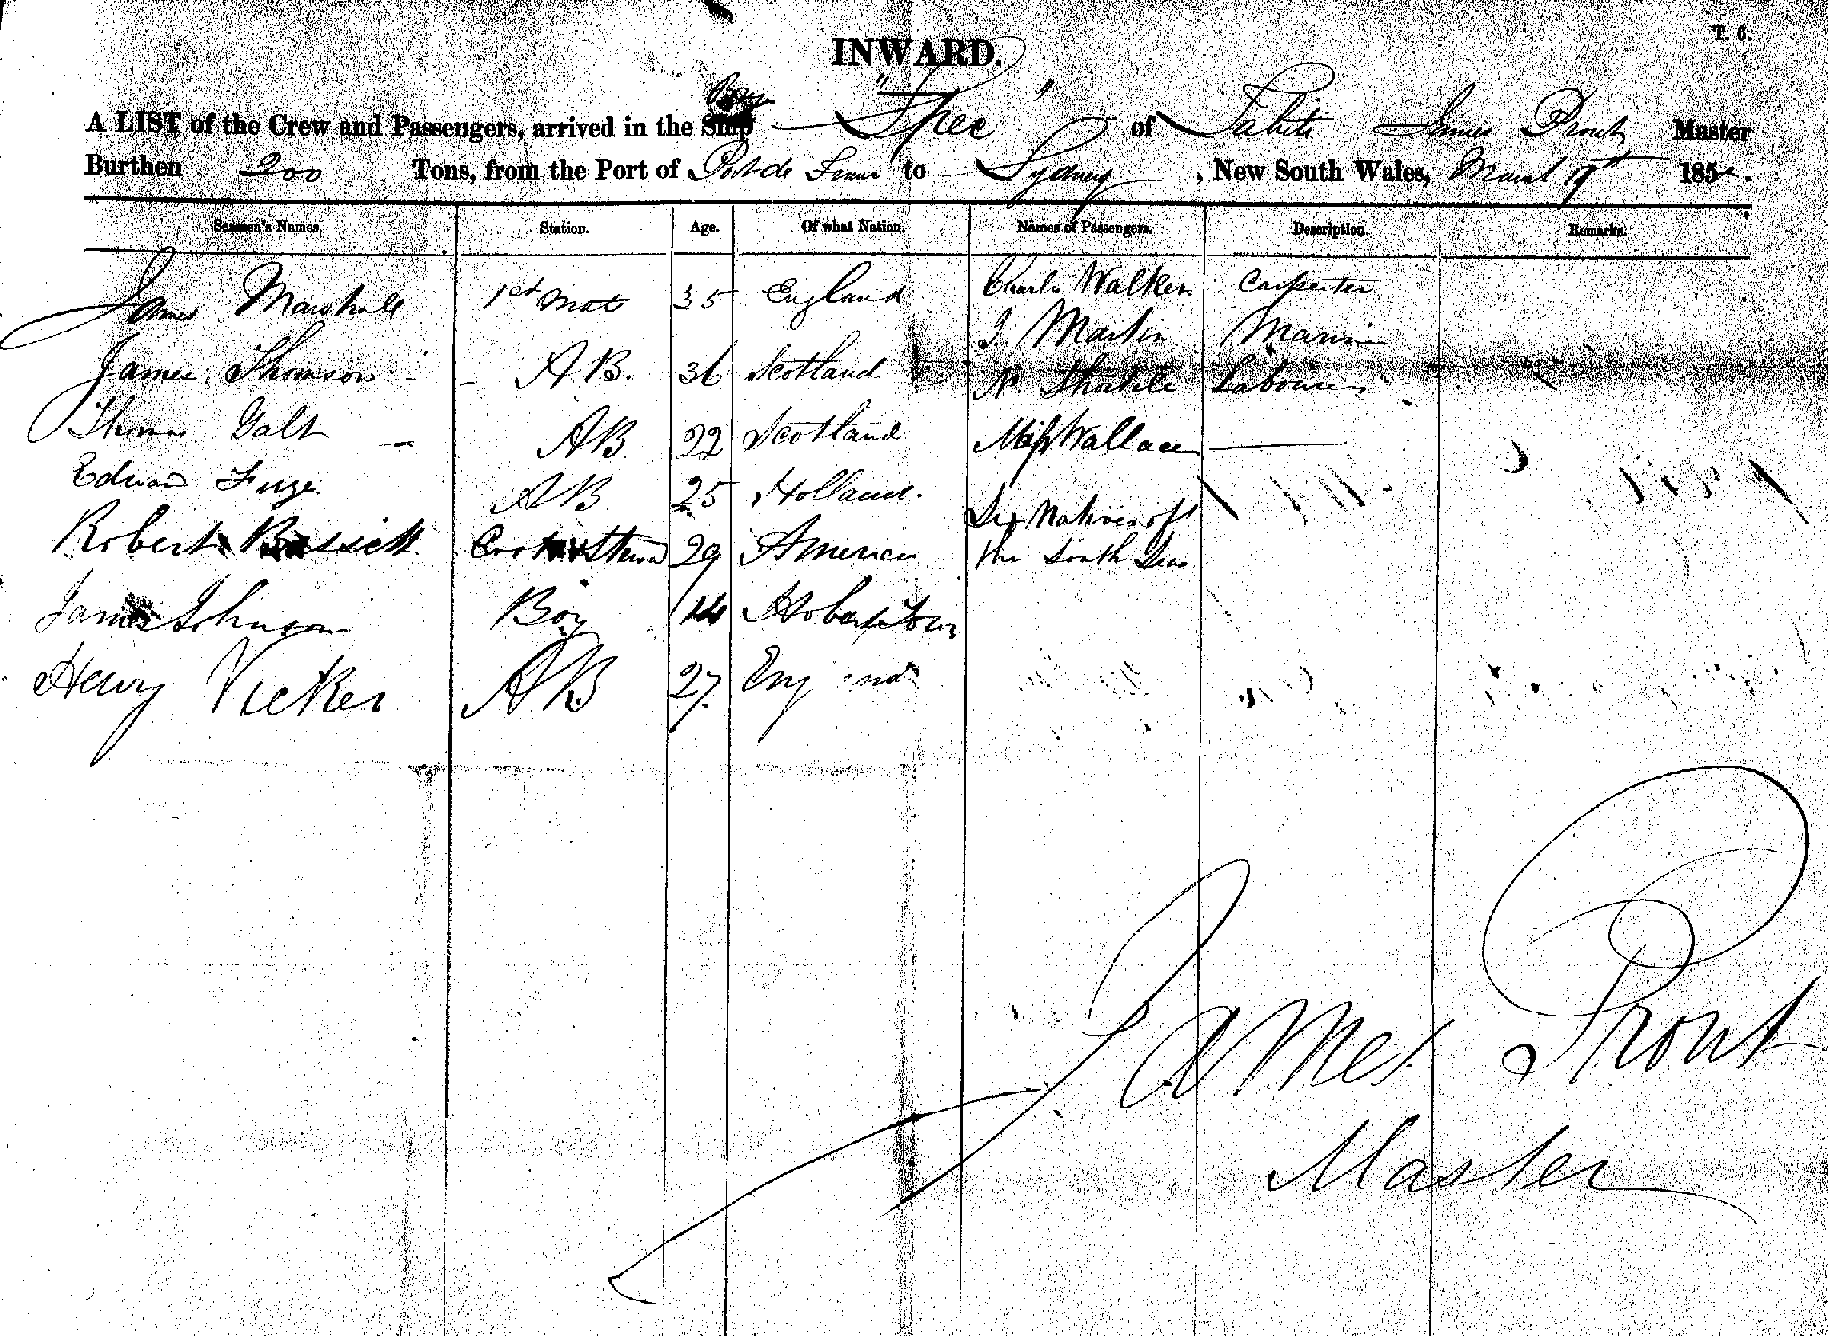 T. 6.
INWARD.
A LIST of the Crew and Passengers, arrived in the Ship "Spec" of Tahiti James Prout Master
Burthen 200 Tons, from the Port of Port de France to Sydney, New South Wales, March 9th 185
Seamen's Names. Station. Age. Of what Nation. Names of Passengers. Description. Remarks.
James Marshall 1st Mate 35 England Charles Walker Carpenter
J Martin
James Thomson A B. 36 Scotland Labourer
Thomas Galt A B 22 Scotland Miss Wallace
Edward A B 25 Holland
Six Natives of
Robert Cook & Steward 29 America the South Seas
James Johnson Boy 14 Hobart Town
Henry Vicker A B 27 England
James Prout
Master